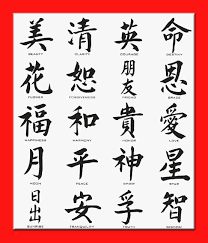 美 清 英 命
BEAUTY CLARITY COURAGE DESTINY
花 恕 朋友 恩
FLOWER FORGIVENESS FRIEND GRACE
福 和 貴 愛
HAPPINESS HARMONY HONOR LOVE
月 平 神 星
MOON PEACE SPIRIT STAR
日出 安 孚 智
SUNRISE TRANQUILITY TRUTH WISDOM